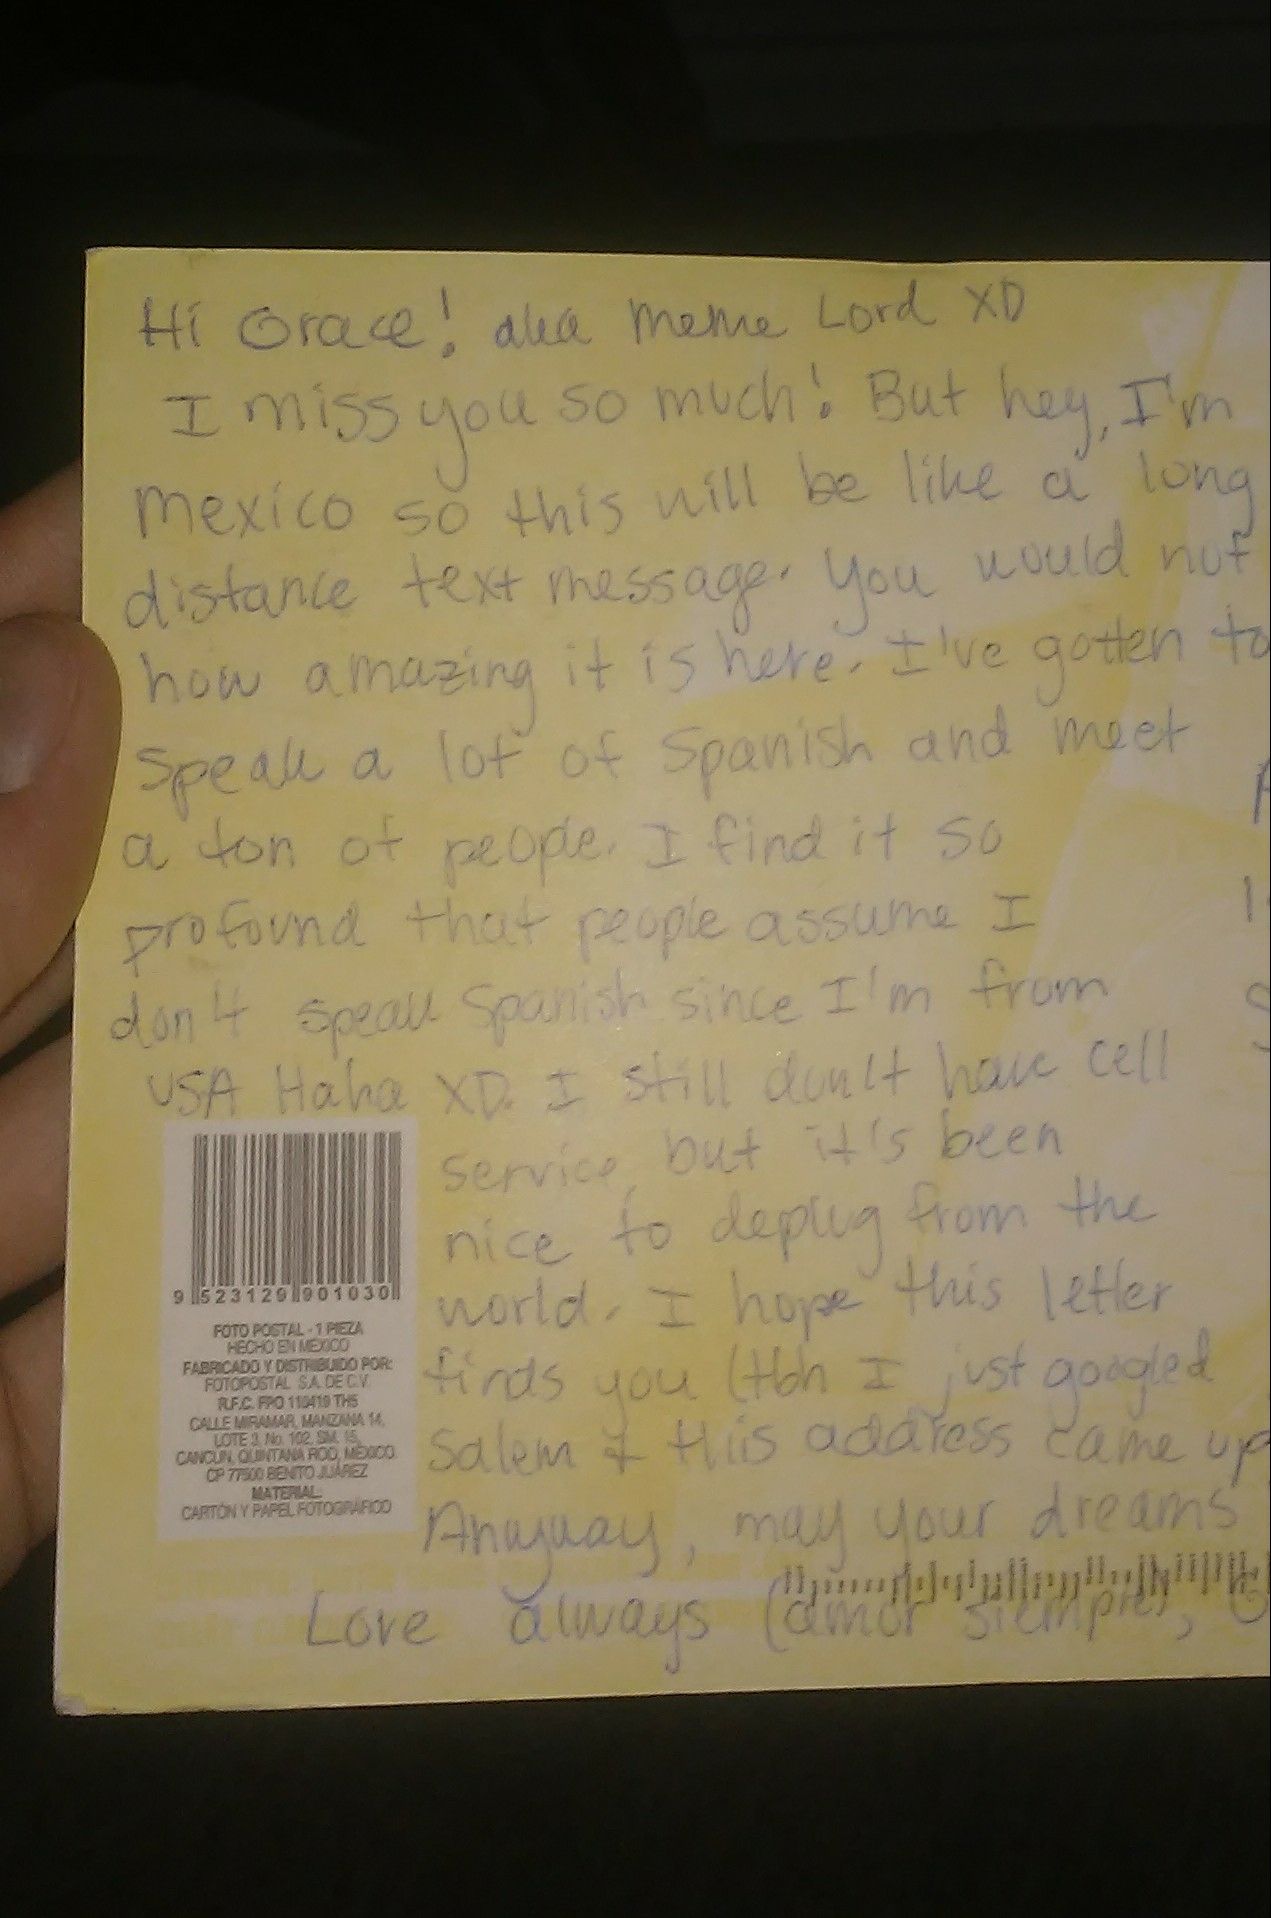 Hi Grace! aka Meme Lord XD
I miss you so much! But hey, I'm
Mexico so this will be like a long
distance text message. You would not
how amazing it is here. I've gotten to
speak a lot of Spanish and meet
a ton of people. I find it so
profound that people assume I
don't speak Spanish since I'm from
USA Haha XD. I still don't have cell
service, but it's been
nice to deplug from the
world. I hope this letter
finds you (tbh I just googled
Salem & this address came up
Anyway, may your dreams
Love always (amor siempre),
9 523129 901030
FOTO POSTAL - 1 PIEZA
HECHO EN MÉXICO
FABRICADO Y DISTRIBUIDO POR:
FOTOPOSTAL S.A. DE C.V.
R.F.C. FPO 110419 TH5
CALLE MIRAMAR, MANZANA 14,
LOTE 3, No. 102, SM. 15,
CANCÚN, QUINTANA ROO, MÉXICO.
CP 77500 BENITO JUÁREZ
MATERIAL:
CARTÓN Y PAPEL FOTOGRÁFICO